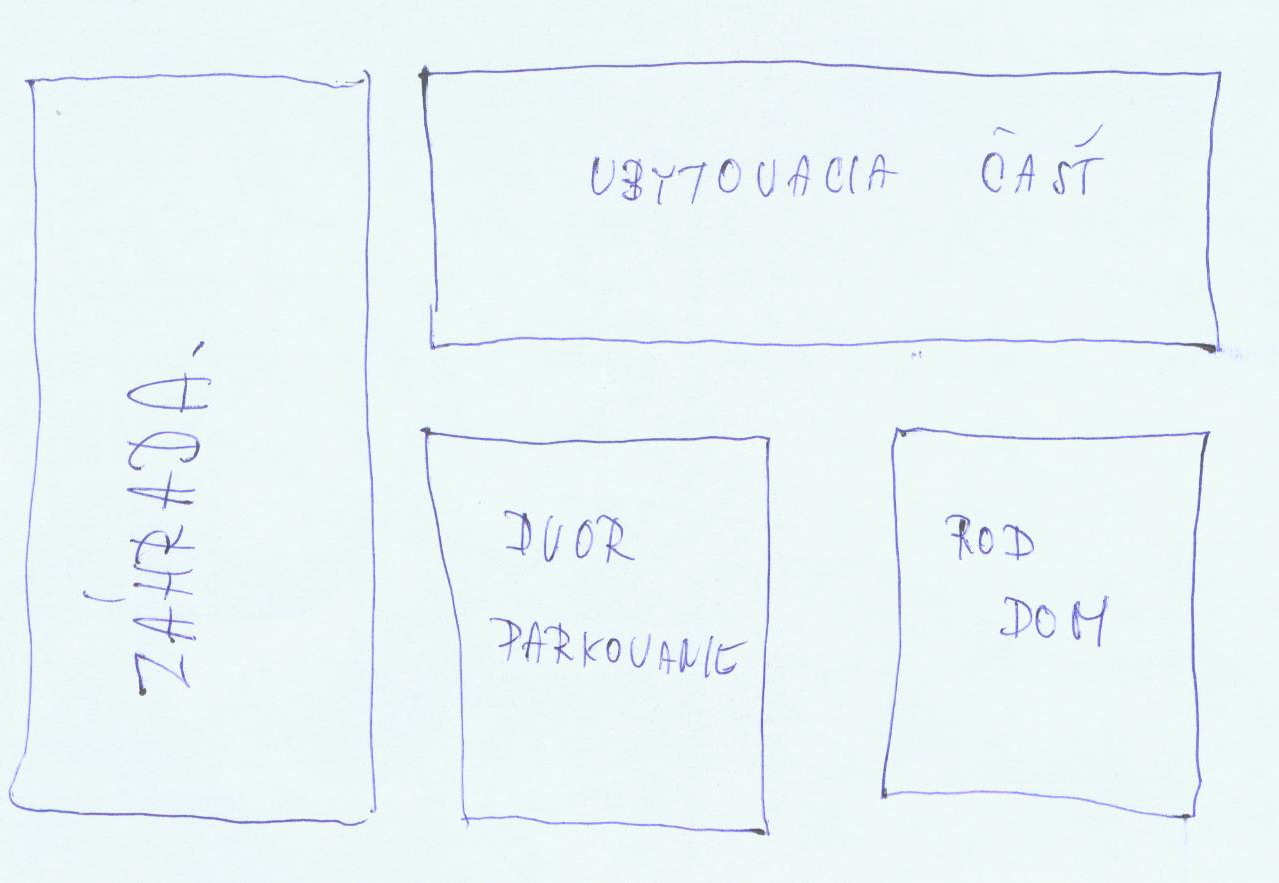 ZÁHRADA
UBYTOVACIA ČASŤ
DVOR
PARKOVANIE
ROD
DOM